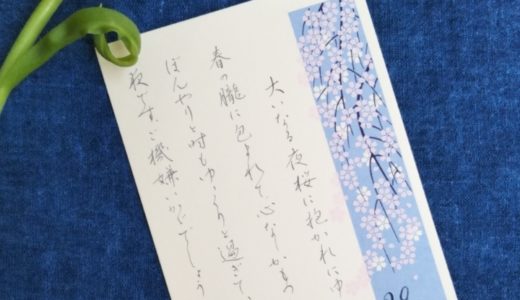 大いなる夜桜に抱かれに中
春の朧に包まれて心なしか
ぼんやりと時もゆっくりと過ぎて
夜です。ご機嫌いかがでしょう